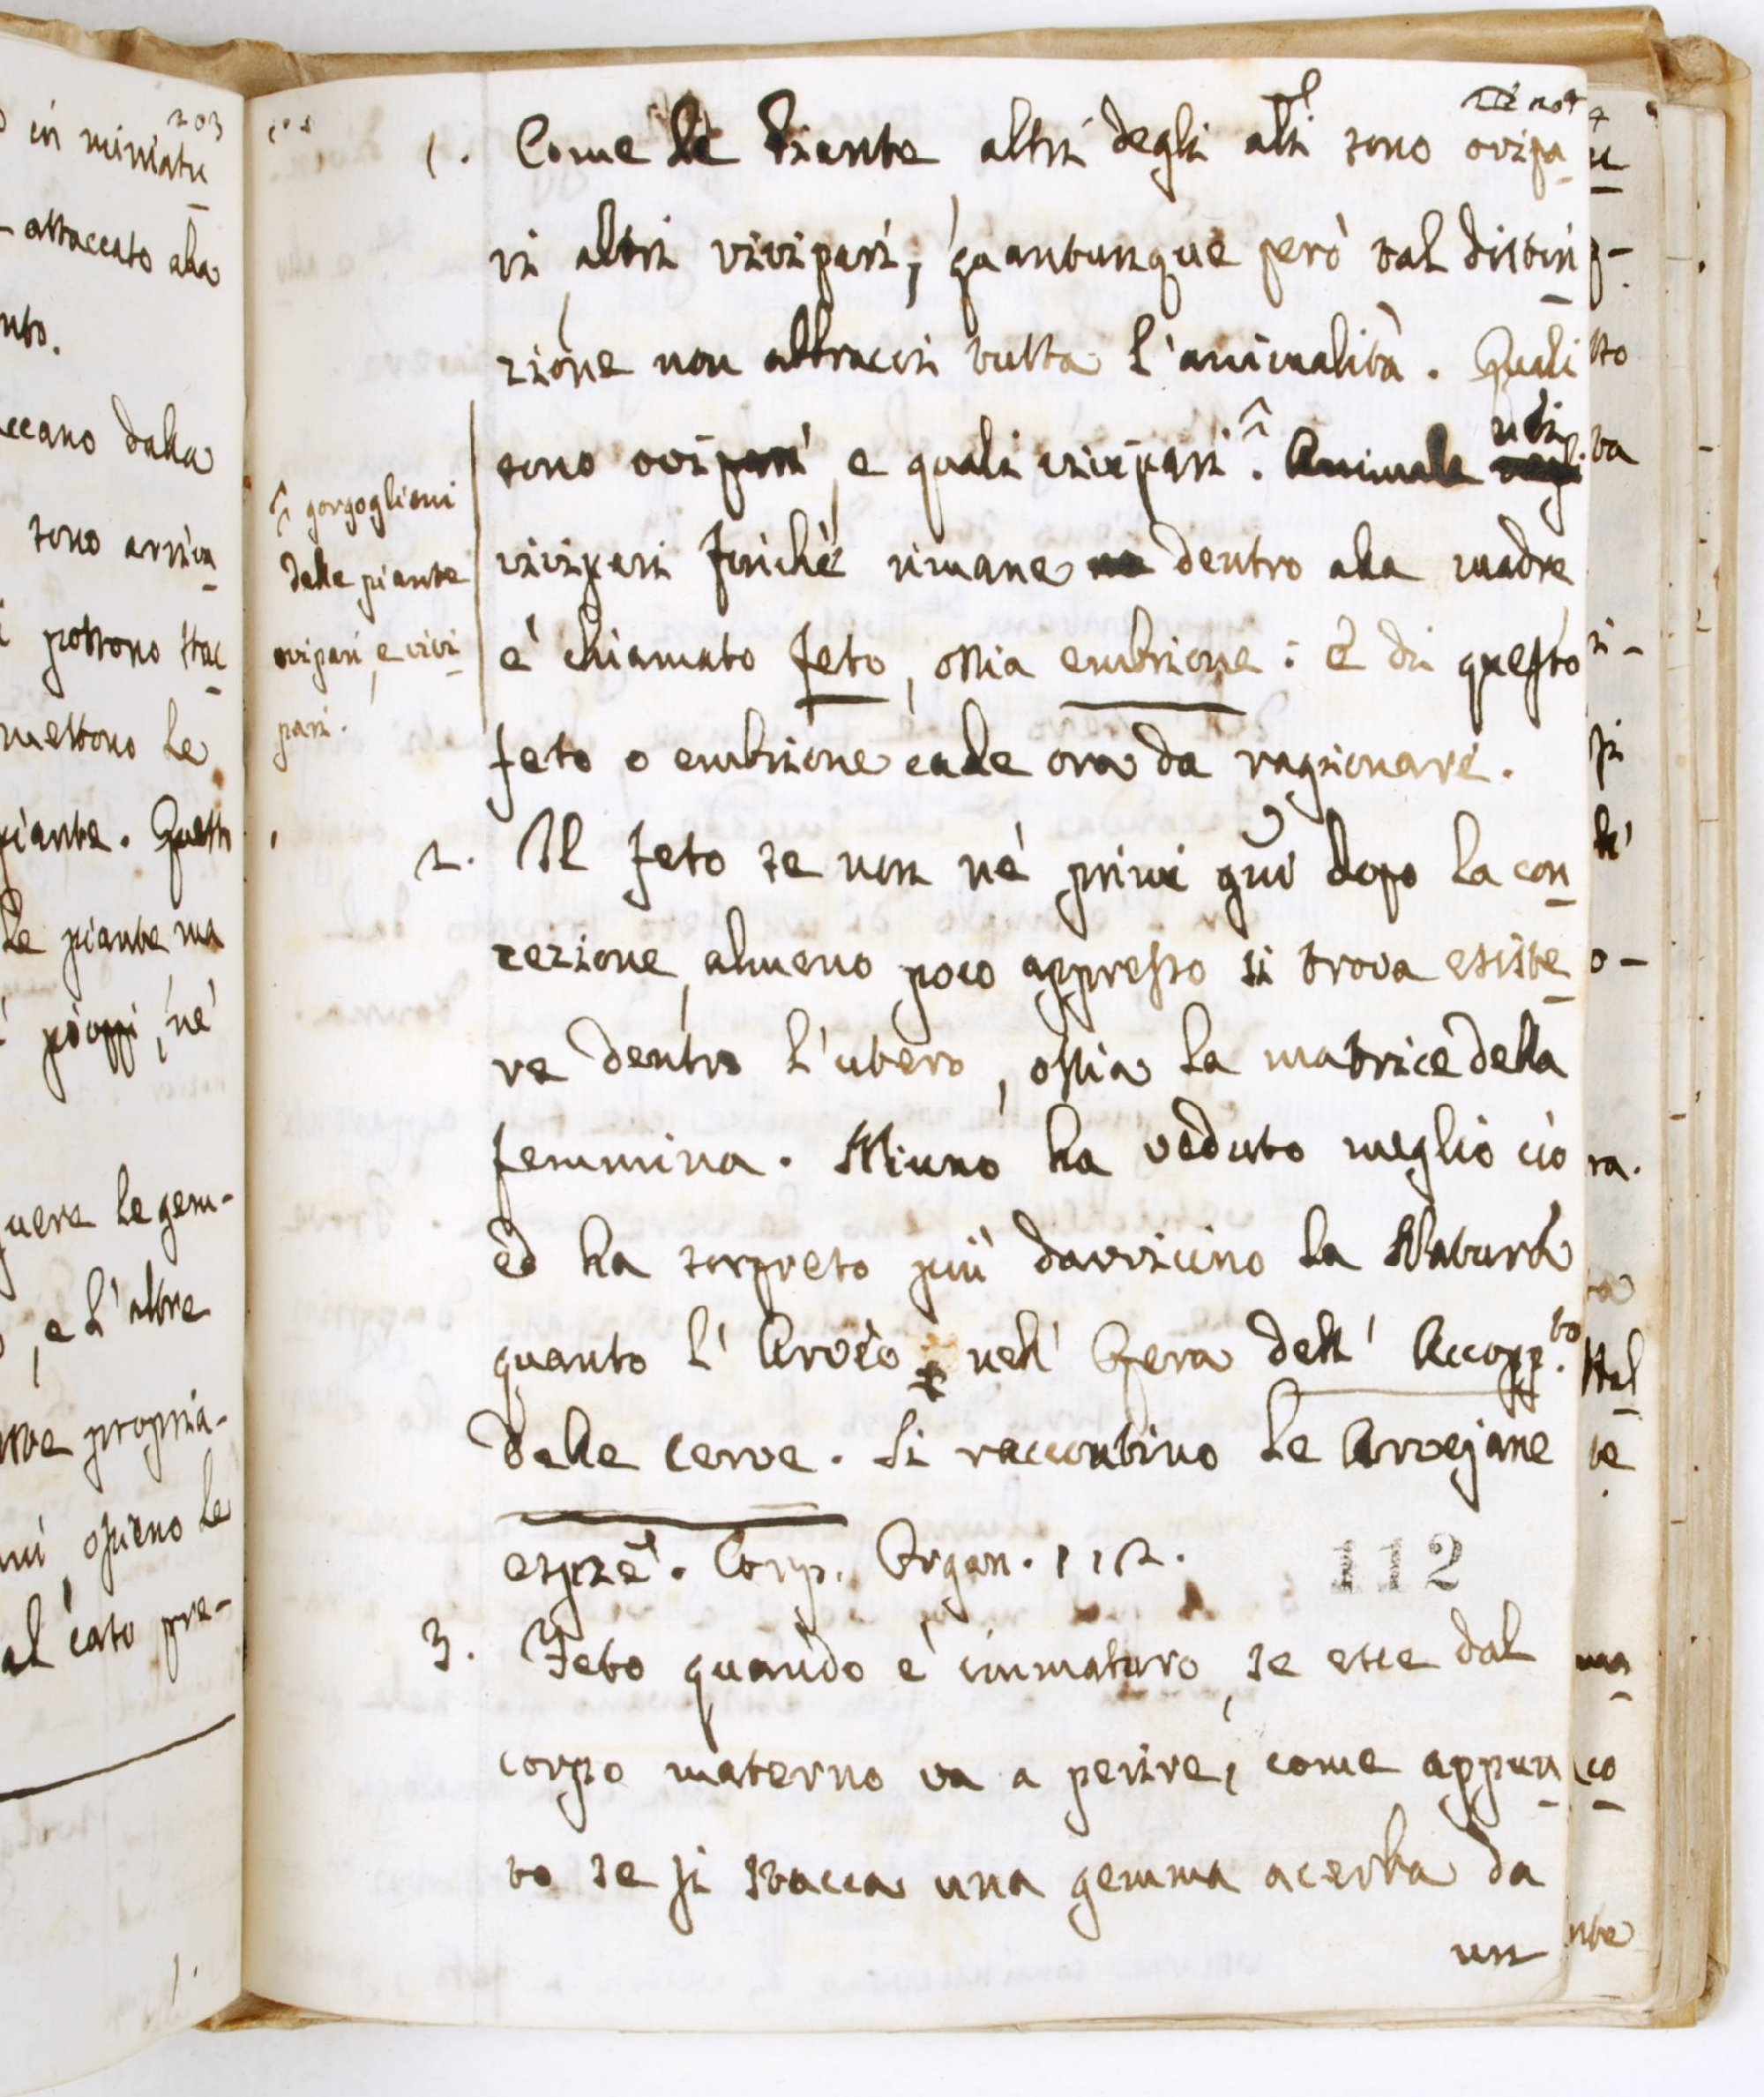 203
in miniatu
attaccato alla
nto.
ccano dalla
sono arriva
possono stac
mettono le
piante. Questi
le piante ma
pioppi, né
uere le gem-
e l'altre
propria-
ni, ossieno le
al caso pre-
1. Come le Piante altri degli ali sono ovipa
ri altri vivipari; quantunque però tal distin
zione non abbracci tutta l'animalità. Quali
sono ovipari e quali vivipari ^. Animale
^ gorgoglioni
delle piante
ovipari, e vivi
pari.
vivipari finché rimane dentro alla madre
è chiamato feto, ossia embrione: e di questo
feto o embrione cade ora da ragionare.
2. Il feto se non né primi gni dopo la con
cezione, almeno poco appresso si trova esiste
re dentro l'utero, ossia la matrice della
femmina. Niuno ha veduto meglio ciò
ed ha sorpreso più davvicino la Natura
quanto l'Arveo nell' Opera dell' Accopp.to
delle cerve. Si raccontino le Arvejane
espze. Corp. Organ. 112.
112
3. Feto quando è immaturo, se esce dal
corpo materno va a perire, come appun
to se si stacca una gemma acerba da
un